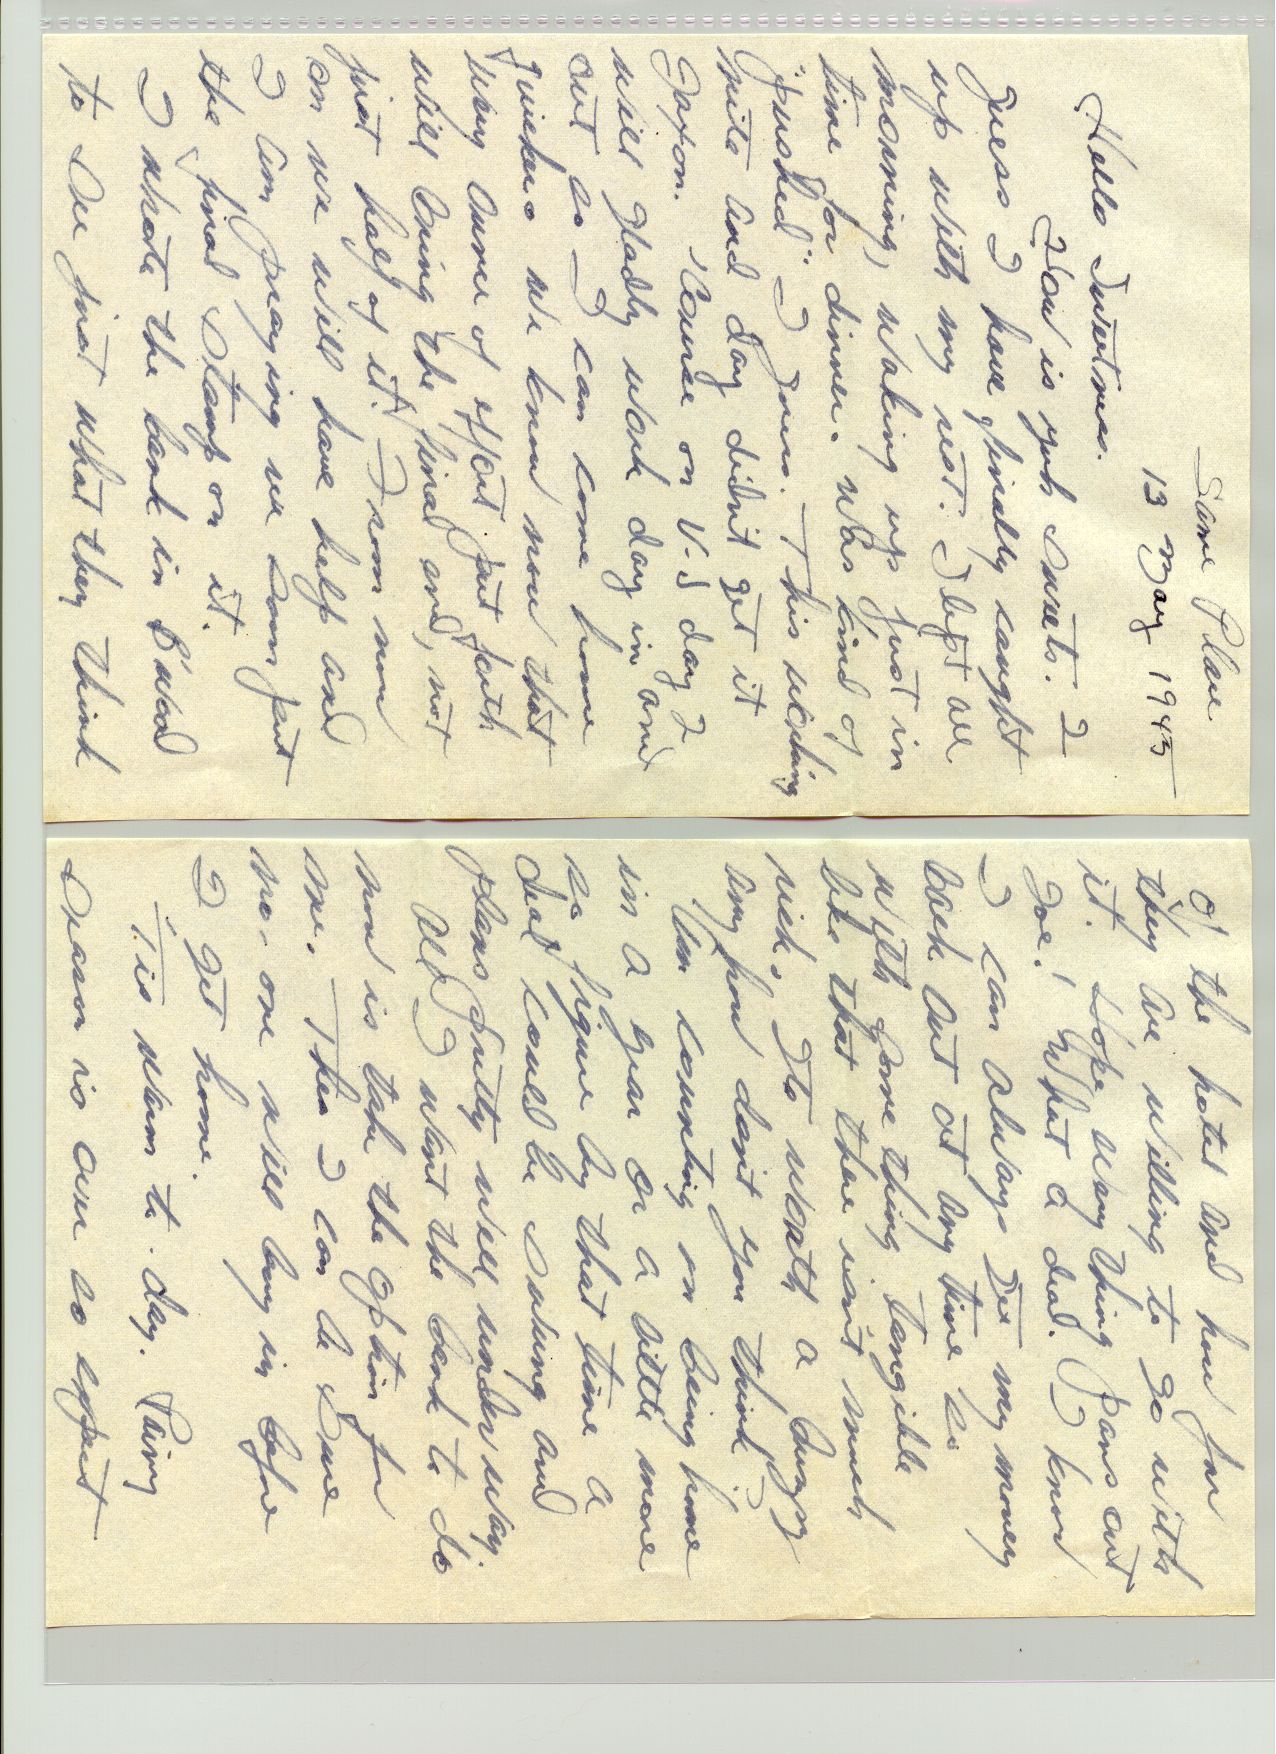 Same Place
13 May 1945
Hello Sweetness.
How is yuh sweets. I
guess I have finally caught
up with my rest. Slept all
morning, waking up just in
time for dinner. Was kind of
"pushed" I guess. This working
nite and day didn't get it
Jaxon. 'Course on V-J day I
will gladly work day in and
out so I can come home
quicker. We know now that
every ounce of effort put forth
will bring the final end, not
just half of it. From now
on we will have help and
I am praying we soon put
the final stamp on it.
I wrote the bank in
to see just what they think
of the hotel and how far
they are willing to go with
it. Hope every thing pans out
Joe. What a deal. I know
I can always get my money
back out at any time so
with some thing tangible
like that there isn't much
risk. It's worth a
anyhow don't you think?
Am counting on being home
in a year or a little more
so figure by that time a
deal could be swung and
plans fully well under way.
All I want the bank to do
now is take the option for
me. Then I can be sure
no-one will buy in before
I get home.
'Tis warm to-day. Rainy
season is over so expect